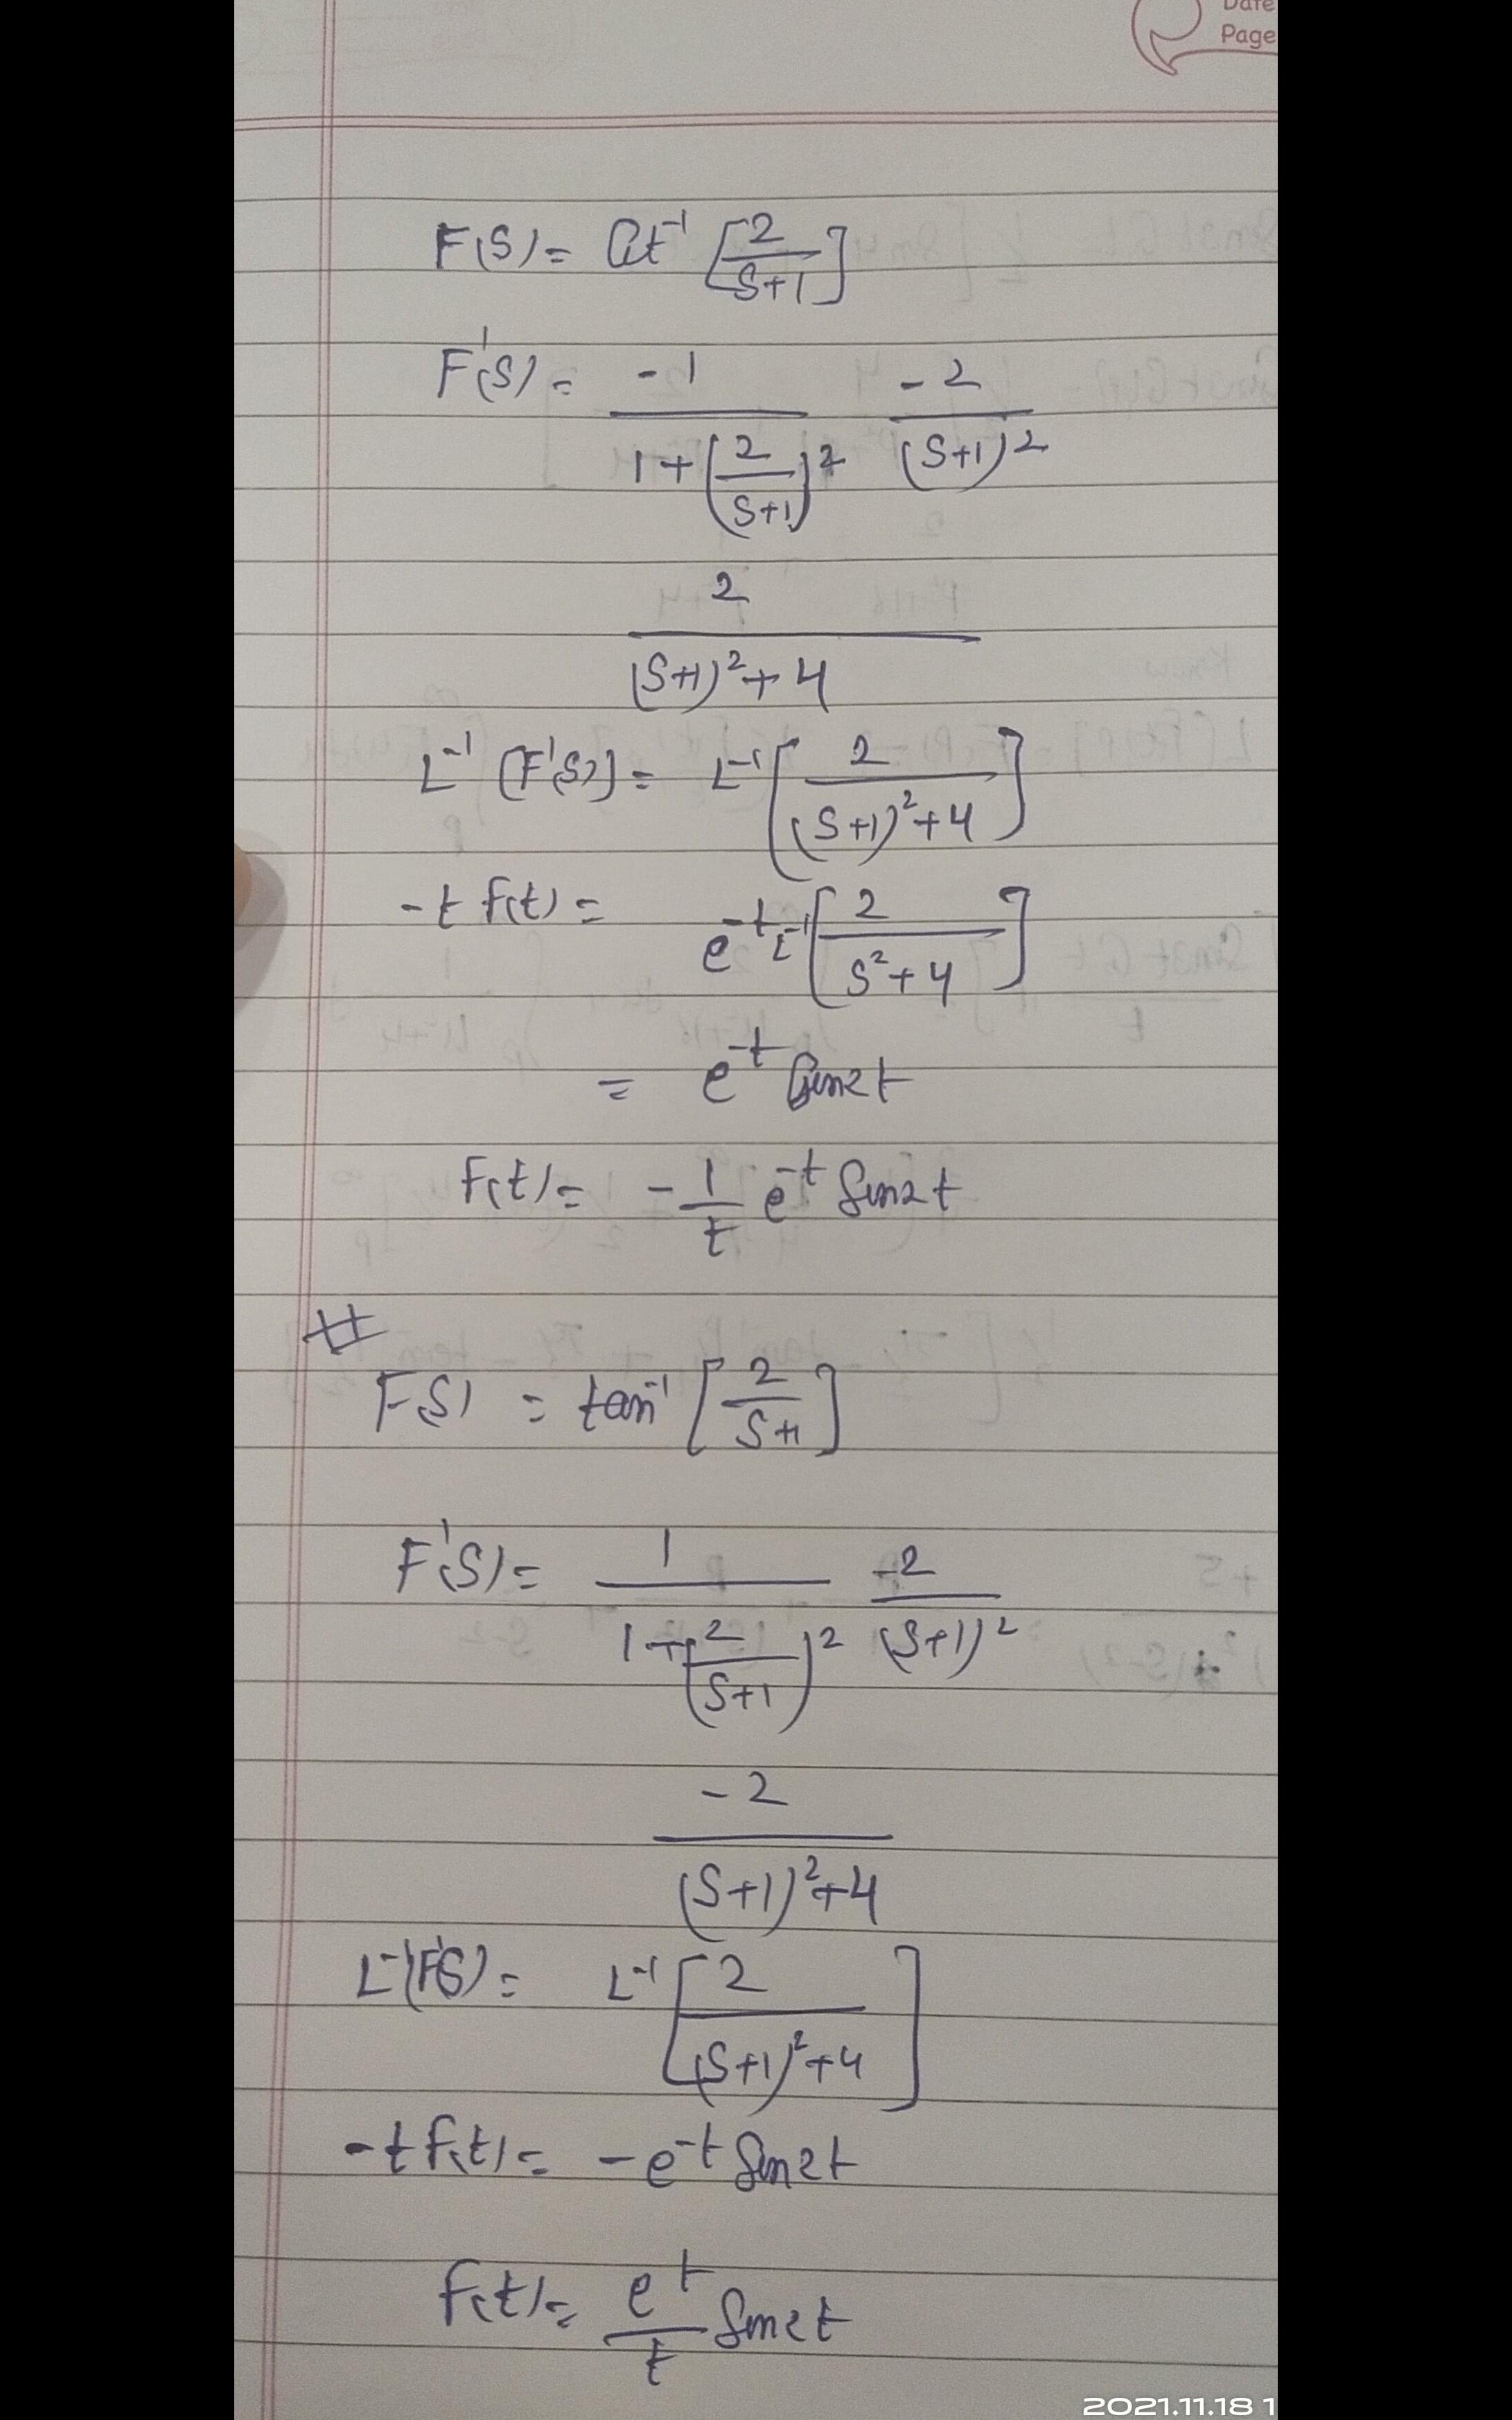 Date
Page
F(S) = Cot⁻¹ [2/(S+1)]
F'(S) = -1/(1+(2/(S+1))²) -2/(S+1)²
2/((S+1)²+4)
L⁻¹ [F'(S)] = L⁻¹ [2/((S+1)²+4)]
-t F(t) = e⁻ᵗ L⁻¹ [2/(S²+4)]
= e⁻ᵗ Sin2t
F(t) = -1/t e⁻ᵗ Sin2t
#
F(S) = tan⁻¹ [2/(S+1)]
F'(S) = 1/(1+(2/(S+1))²) -2/(S+1)²
-2/((S+1)²+4)
L⁻¹(F'(S)) = L⁻¹ [2/((S+1)²+4)]
-t F(t) = -e⁻ᵗ Sin2t
F(t) = eᵗ/t Sin2t
2021.11.18 1